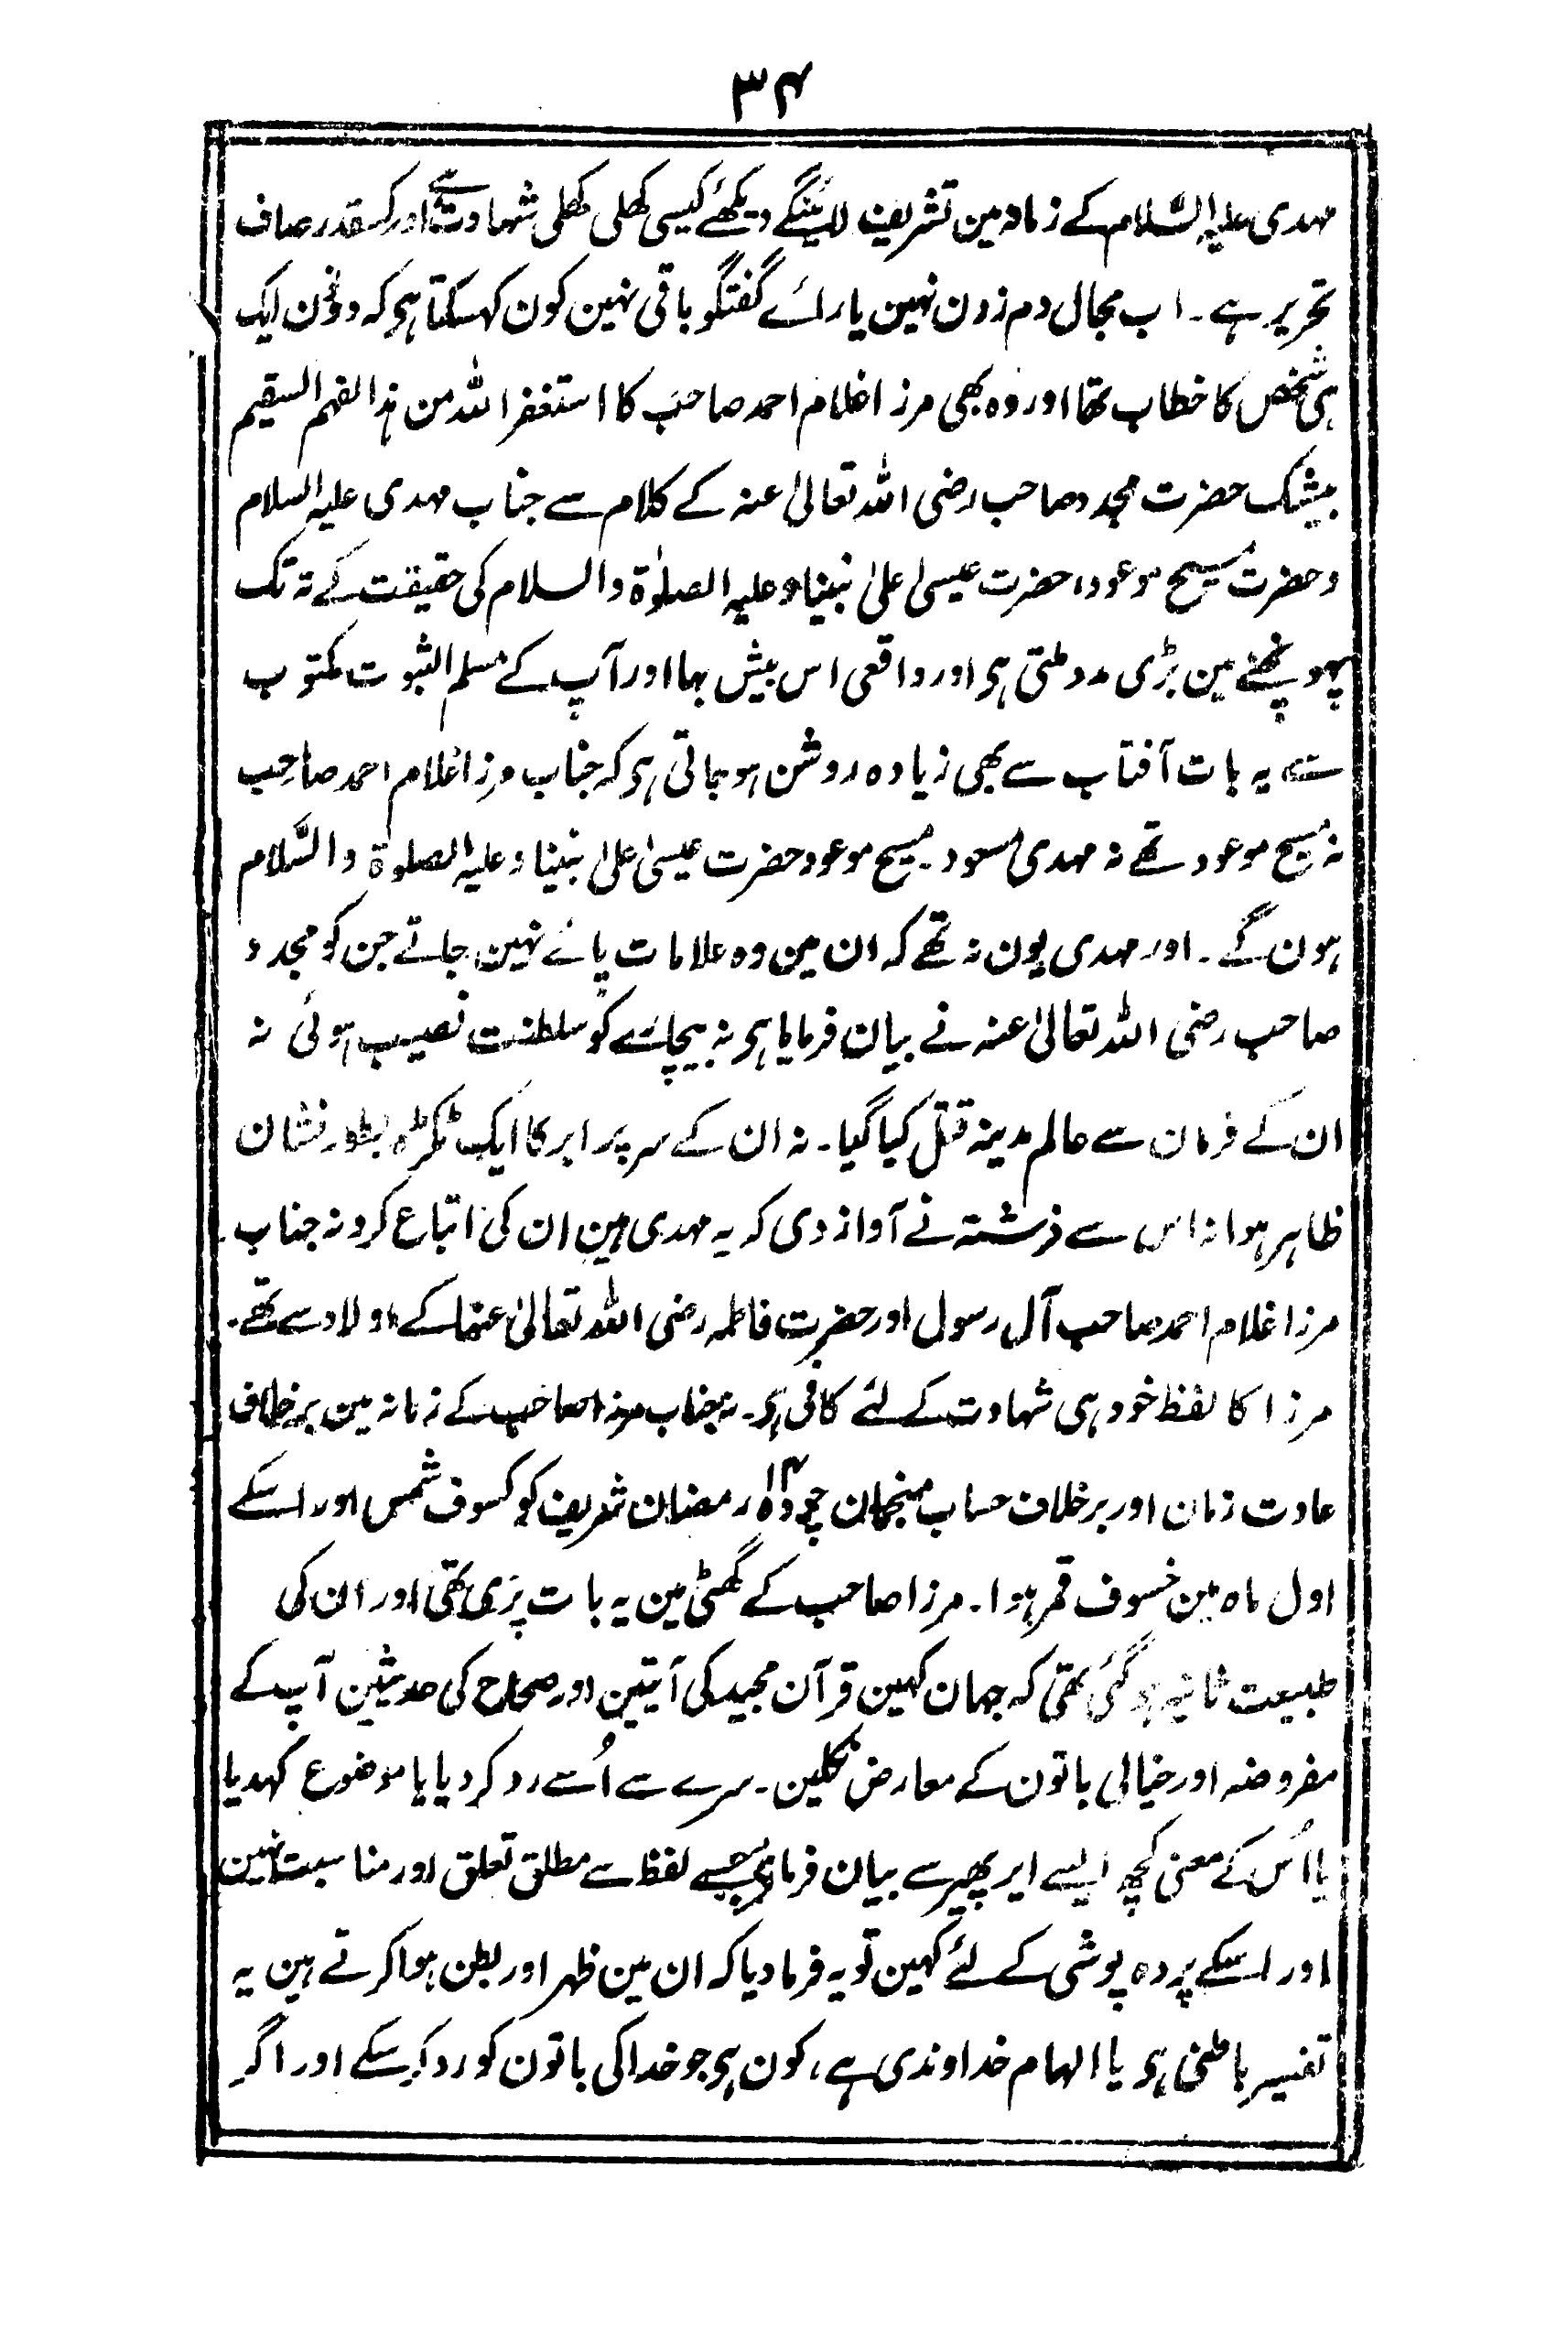 ۳۴
مہدی علیہ السّلام کے زمانہ مین تشریف لائینگے دیکھئے کیسی کھلی کھلی شہادت ہے اور کسقدر صاف
تحریر ہے۔ اب مجال دم زدن نہین یارائے گفتگو باقی نہین کون کہسکتا ہی کہ دونون ایک
ہی شخص کا خطاب تھا اور وہ بھی مرزا غلام احمد صاحب کا استغفر اللہ من ہذا الفہم السقیم
بیشک حضرت مجدد صاحب رضی اللہ تعالیٰ عنہ کے کلام سے جناب مہدی علیہ السلام
و حضرت مسیح موعود، حضرت عیسیٰ علیٰ نبینا و علیہ الصلوٰۃ والسلام کی حقیقت کے تہ تک
پہونچنے مین بڑی مدد ملتی ہی اور واقعی اس بیش بہا اور آپ کے مسلم الثبوت مکتوب
سے یہ بات آفتاب سے بھی زیادہ روشن ہوجاتی ہی کہ جناب مرزا غلام احمد صاحب
نہ مسیح موعود تھے نہ مہدی مسعود۔ مسیح موعود حضرت عیسیٰ علیٰ نبینا و علیہ الصلوۃ والسّلام
ہون گے۔ اور مہدی یون نہ تھے کہ ان مین وہ علامات پائے نہین جاتے جن کو مجدد
صاحب رضی اللہ تعالیٰ عنہ نے بیان فرمایا ہی نہ بیچارے کو سلطنت نصیب ہوئی نہ
ان کے فرمان سے عالم مدینہ قتل کیا گیا۔ نہ ان کے سر پر ابر کا ایک ٹکڑہ بطور نشان
ظاہر ہوا نہ اس سے فرشتہ نے آواز دی کہ یہ مہدی ہین ان کی اتباع کرو نہ جناب
مرزا غلام احمد صاحب آل رسول اور حضرت فاطمہ رضی اللہ تعالیٰ عنہا کے اولاد سے تھے۔
مرزا کا لفظ خود ہی شہادت کے لئے کافی ہی۔ نہ جناب مرزا صاحب کے زمانہ مین برخلاف
عادت زمان اور برخلاف حساب منجمان چودہ ۱۴ رمضان شریف کو کسوف شمس اور اسکے
اول ماہ مین خسوف قمر ہوا۔ مرزا صاحب کے گھٹی مین یہ بات پڑی تھی اور ان کی
طبیعت ثانیہ ہوگئی تھی کہ جہان کہین قرآن مجید کی آیتین اور صحاح کی حدیثین آپ کے
مفروضہ اور خیالی باتون کے معارض نکلین۔ سرے سے اُسے رد کردیا یا موضوع کہدیا
یا اُس کے معنی کچھ ایسے ایر پھیر سے بیان فرمائے جسے لفظ سے مطلق تعلق اور مناسبت نہین
اور اسکے پردہ پوشی کے لئے کہین تو یہ فرمادیا کہ ان مین ظہر اور بطن ہوا کرتے ہین یہ
تفسیر باطنی ہی یا الہام خداوندی ہے، کون ہی جو خدا کی باتون کو رد کرسکے اور اگر